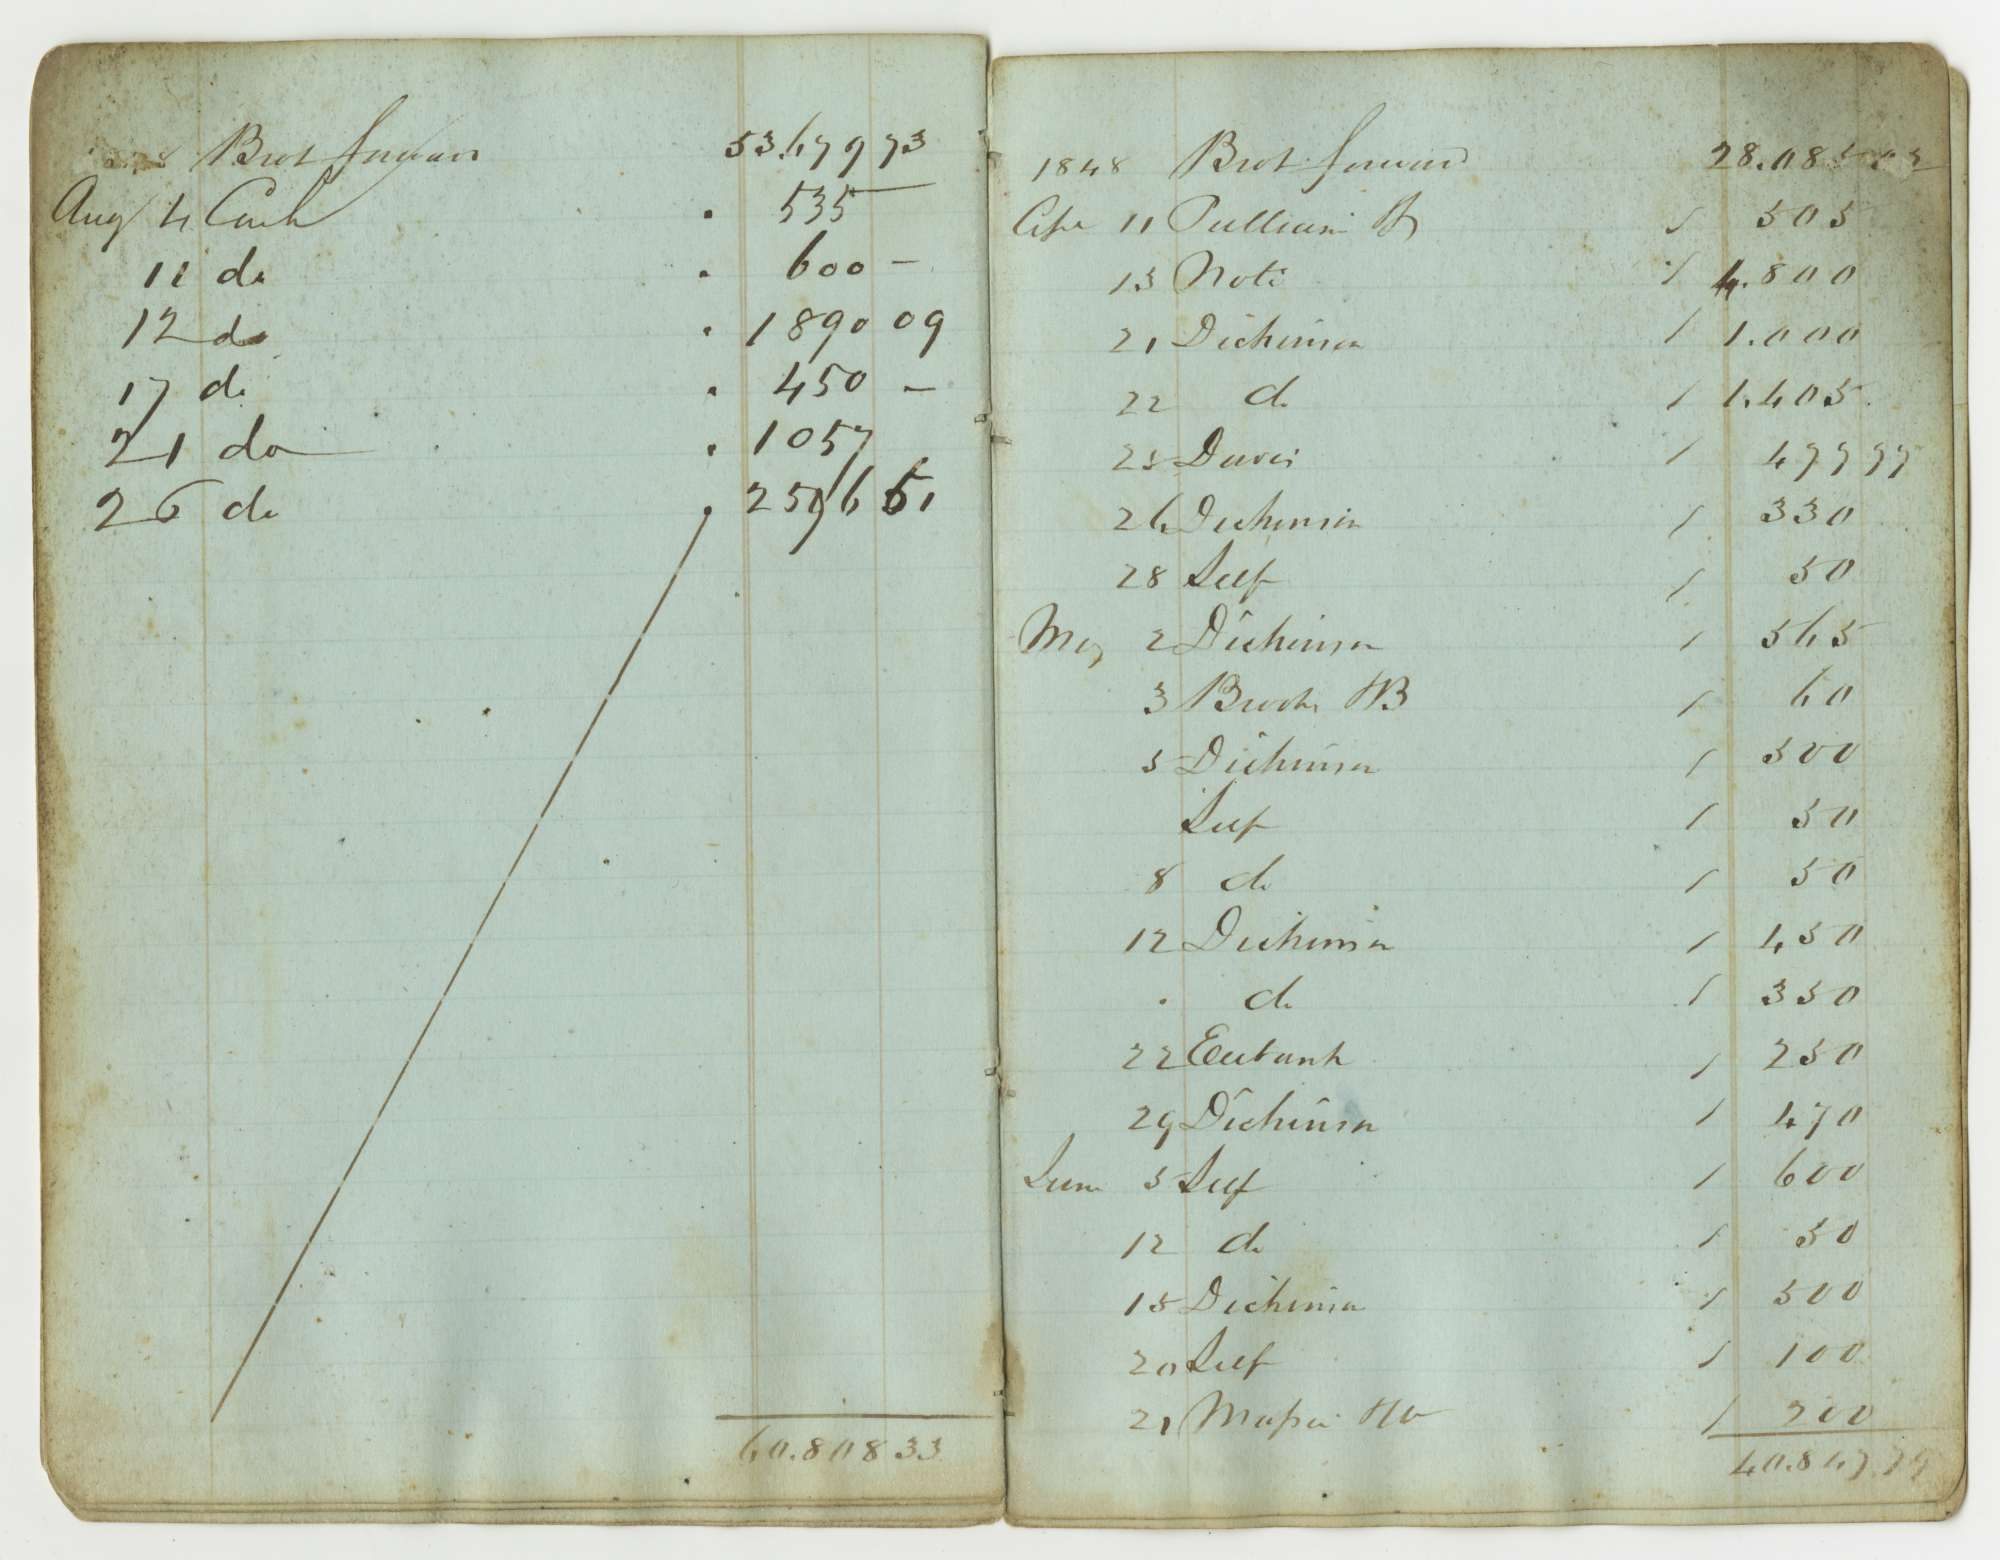 1848 Brot forward 53.679 73
Aug 4 Cash 535 —
11 do 600 —
12 do 1890 09
17 do 450 —
21 do 1057
26 do 2596 51
60.808 33
1848 Brot forward 28.085 02
Apr 11 Pulliam 505
13 Note 4.800
21 Dickinson 1.000
22 do 1.405
25 Davis 477 77
26 Dickinson 330
28 Self 50
May 2 Dickinson 565
3 Brooks HB 60
5 Dickinson 500
Self 50
8 do 50
12 Dickinson 450
" do 350
22 Eubank 250
29 Dickinson 470
June 5 Self 600
12 do 50
15 Dickinson 500
20 Self 100
21 200
40.847 79